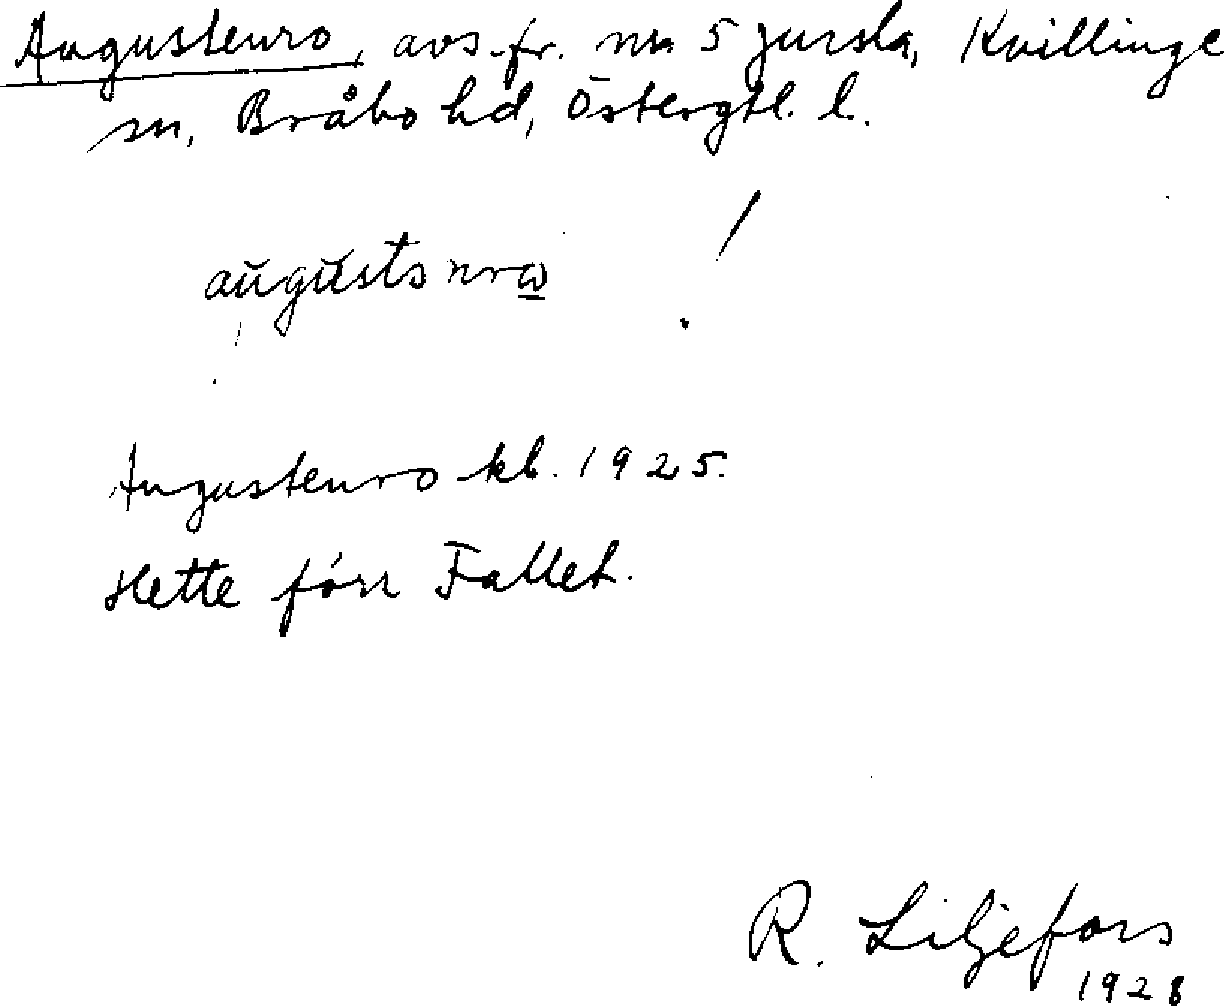 Augustenro, avs. fr. nr 5 Jursla, Kvillinge
sn, Bråbo hd, Östergtl. l.
Augustenro kb. 1925.
Hette förr Fallet.
R. Liljefors
1928